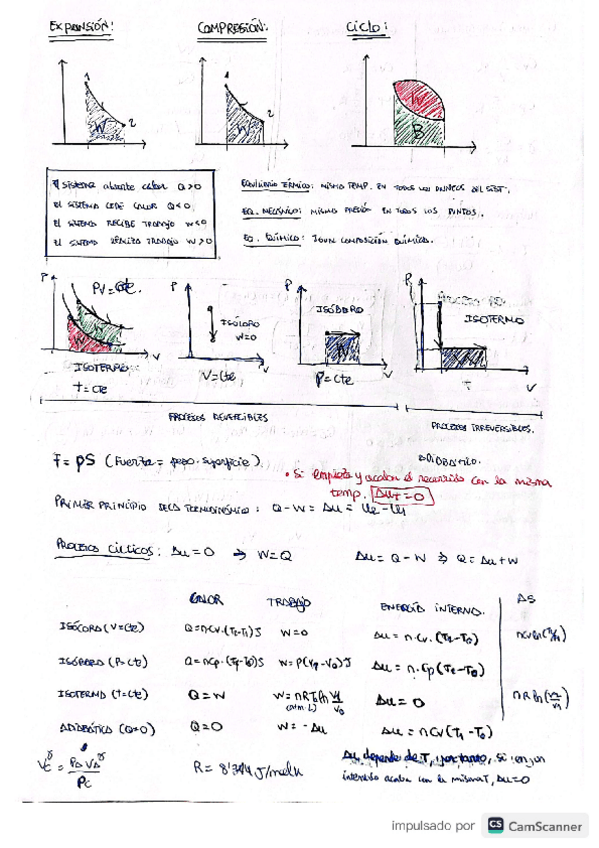 EXPANSIÓN:
COMPRESIÓN:
Ciclo:
1
2
W
1
2
W
W
B
El sistema absorbe calor Q>0
El sistema cede calor Q<0
El sistema recibe trabajo W<0
El sistema realiza trabajo W>0
Equilibrio térmico: misma temp. en todos los puntos del sist.
Eq. mecánico: misma presión en todos los puntos.
Eq. químico: composición química.
P
PV=cte.
W
V
ISOTERMO
T=cte
P
ISÓCORO
W=0
V
V=cte
P
ISÓBARO
W
V
P=cte
P
ISOTERMO
V
PROCESOS REVERSIBLES
PROCESOS IRREVERSIBLES.
F = pS (Fuerza = · superficie)
ADIABÁTICO.
• Si empieza y acaba el recorrido con la misma
temp. ΔU_T=0
PRIMER PRINCIPIO DE LA TERMODINÁMICA: Q-W = Δu = U₂-U₁
PROCESOS CÍCLICOS: Δu=0 → W=Q
Δu = Q-W → Q=Δu+W
CALOR
TRABAJO
ENERGÍA INTERNA.
ΔS
ISÓCORO (V=cte)
Q=nCv·(T₂-T₁)J
W=0
Δu = n·Cv·(T₁-T₀)
ISÓBARO (P=cte)
Q=nCp·(T₁-T₀)J
Δu = n·Cp(T₁-T₀)
ISOTERMO (T=cte)
Q=W
(atm·L)
Δu = 0
ADIABÁTICA (Q=0)
Q=0
W=-Δu
Δu = nCv(T₁-T₀)
R= 8'314 J/molK
Δu depende de T, por tanto, si en un
intervalo acaba con la misma T, Δu=0
impulsado por CS CamScanner